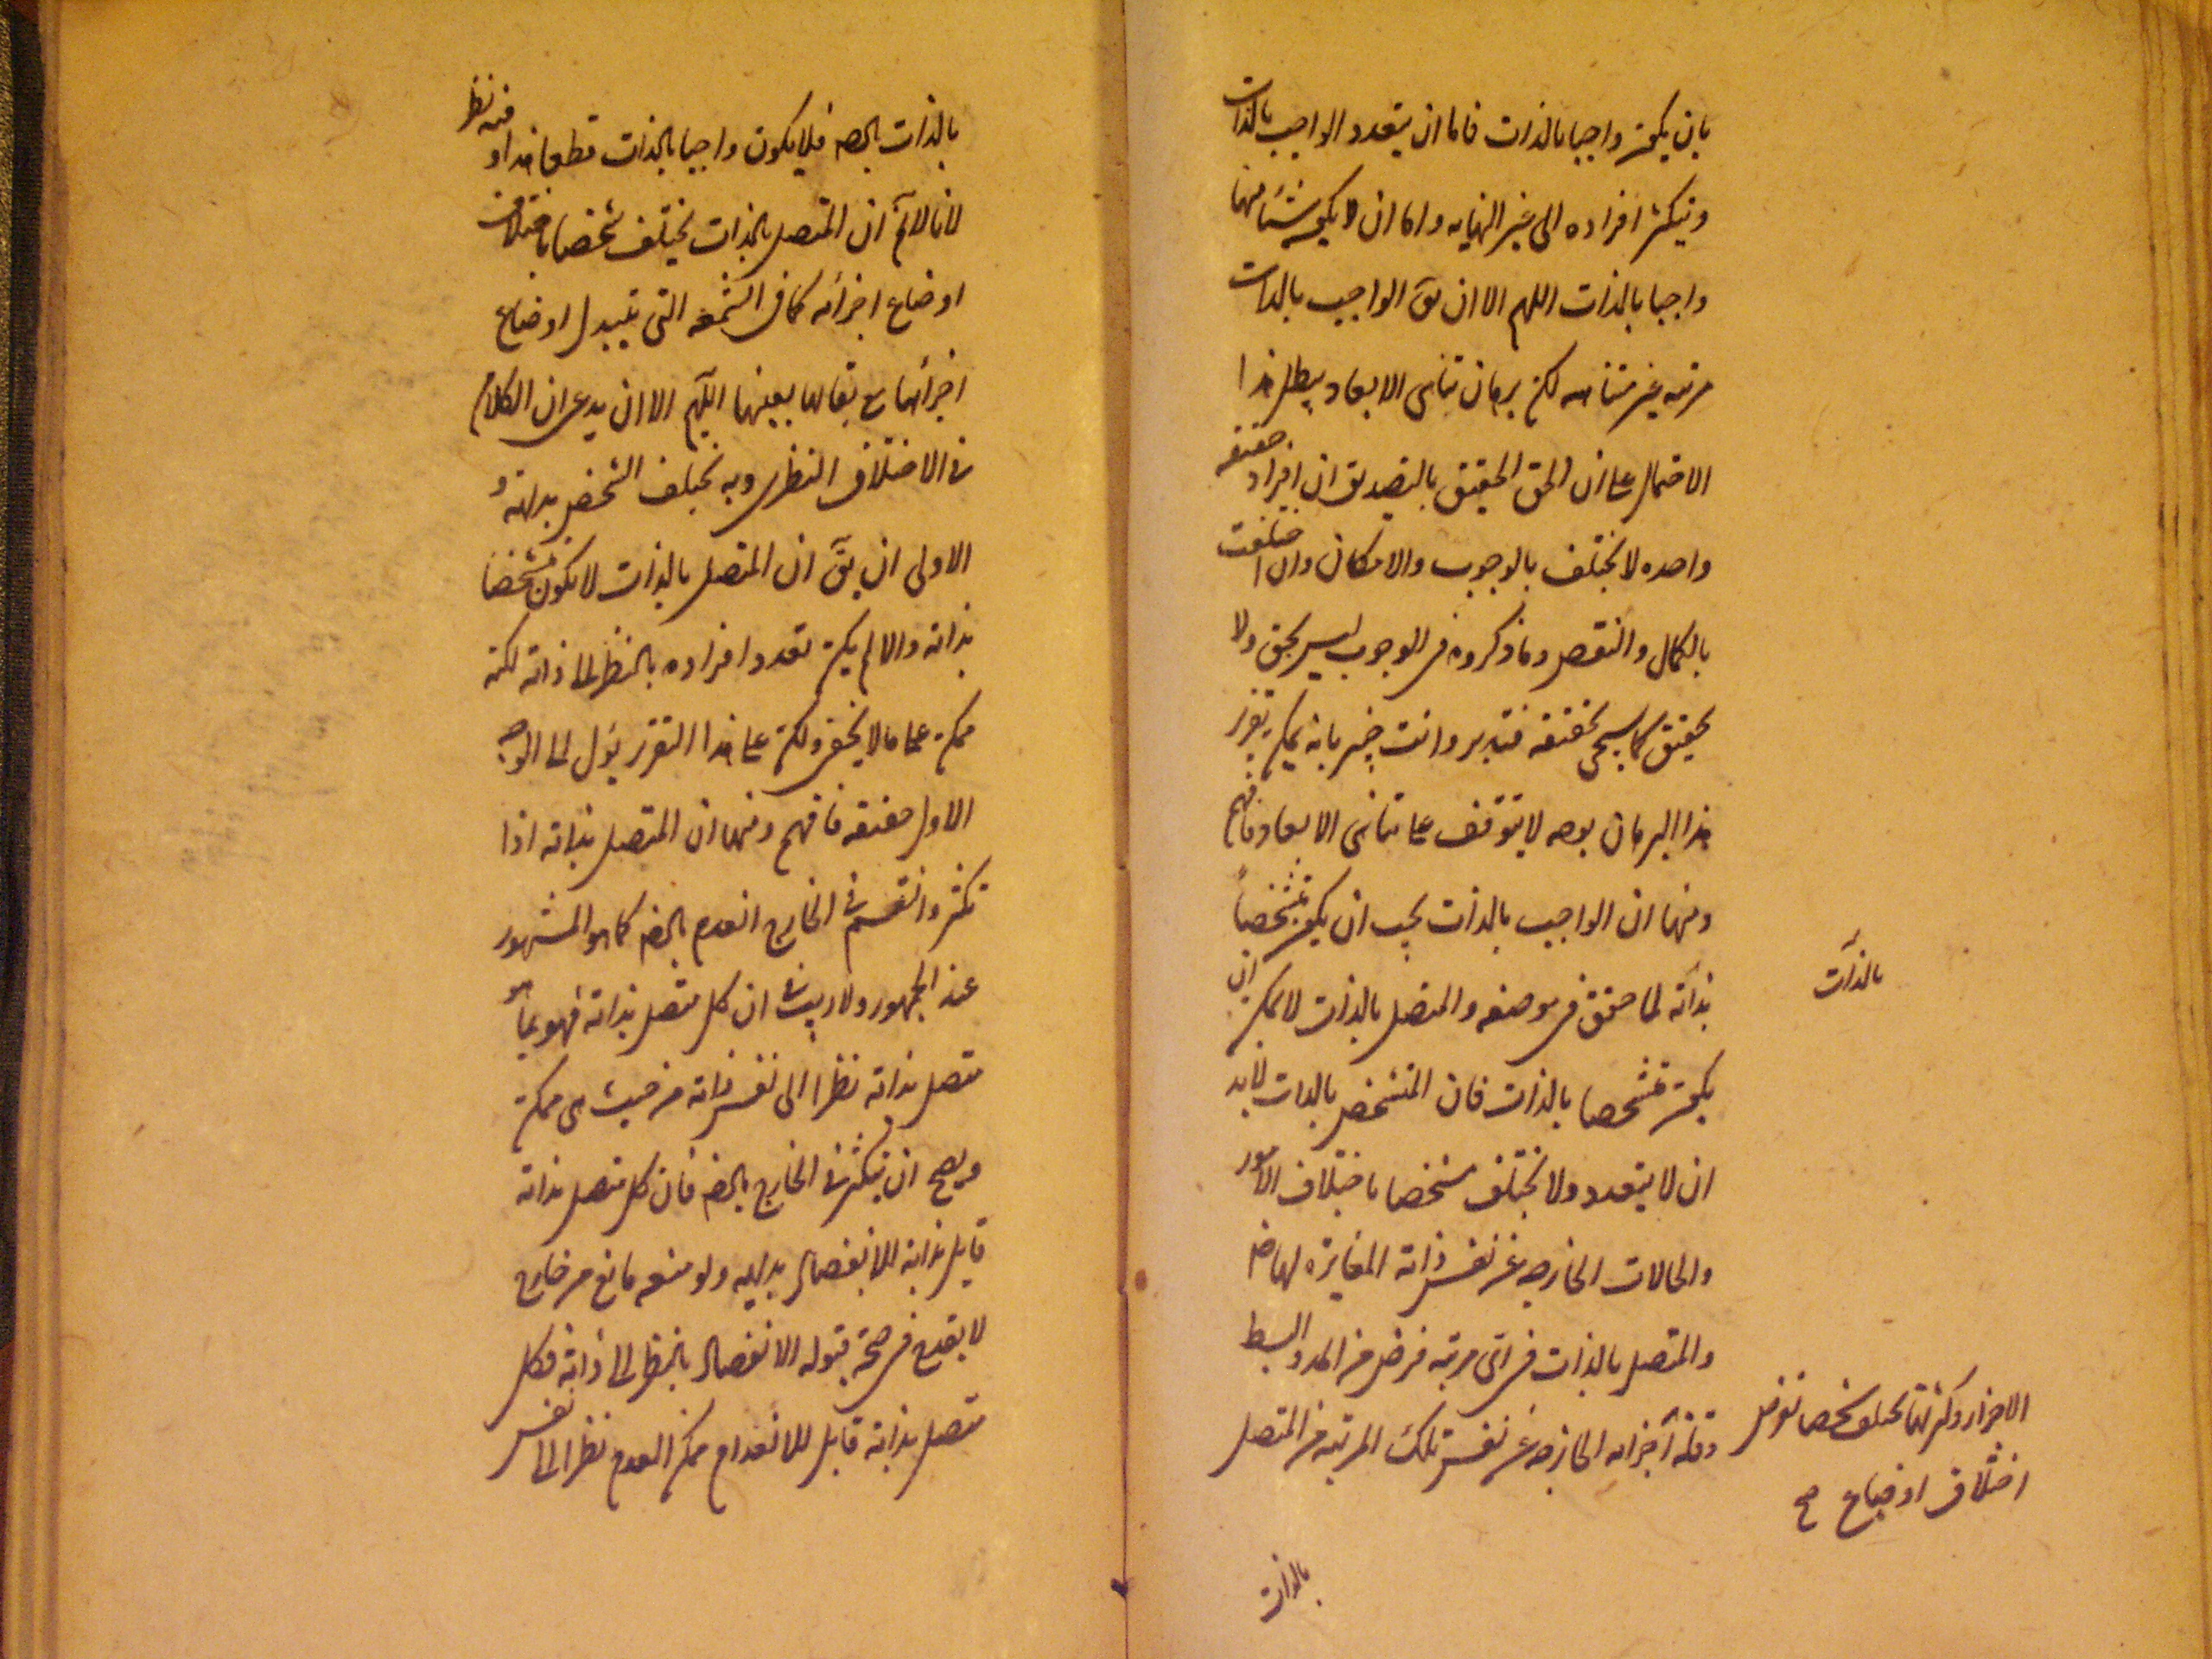 بان يكون واجبا بالذات فاما ان يتعدد الواجب بالذات
ويتكثر افراده الى غير النهايه واما ان لا يكون شئ منها
واجبا بالذات اللهم الا ان يق الواجب بالذات
مرتبه غير متناهيه لكن برهان تناهى الابعاد يبطل هذا
الاحتمال على ان الحق الحقيق بالتصديق ان افراد حقيقه
واحده لا يختلف بالوجوب والامكان وان اختلفت
بالكمال والنقص وما ذكروه فى الوجوب ليس بحق ولا
بحقيق كما سيجى تحقيقه فتدبر وانت خبير بانه يمكن تقرير
هذا البرهان بوجه لا يتوقف على تناهى الابعاد فافهم
ومنها ان الواجب بالذات يجب ان يكون متشخصاً
بذاته لما حقق فى موضعه والمتصل بالذات لا يمكن ان
يكون متشخصا بالذات فان المتشخص بالذات لابد
ان لا يتعدد ولا يختلف تشخصا باختلاف الامور
والحالات الخارجه عن نفس ذاته المغايره لها
والمتصل بالذات فى اى مرتبه فرض من المد والبسط
وقلة اجزائه الخارجه عن نفس تلك المرتبه من المتصل
بالذات
الاجزاء وكثرتها يختلف تشخصا
اختلاف اوضاع صح
بالذات
بالذات فلا يكون واجبا بالذات قطعا هذا وفيه نظر
لانا لا نم ان المتصل بالذات يختلف تشخصا باختلاف
اوضاع اجزائه كما فى الشمعه التى يتبدل اوضاع
اجزائها مع بقائها بعينها اللهم الا ان يدعى ان الكلام
فى الاختلاف النظرى وبه يختلف التشخص بديهة و
الاولى ان يق ان المتصل بالذات لا يكون متشخصا
بذاته والا لم يكن تعدد افراده بالنظر الى ذاته لكنه
ممكن على ما لا يخفى ولكن على هذا التقرير يؤل الى الوجه
الاول حقيقه فافهم ومنها ان المتصل بذاته اذا
تكثر وانقسم فى الخارج انعدم كما هو المشهور
عند الجمهور ولا ريب فى ان كل متصل بذاته فهو بما هو
متصل بذاته نظرا الى نفس ذاته من حيث هى ممكن
ويصح ان يتكثر فى الخارج فان كل متصل بذاته
قابل بذاته للانفصال بديهه ولو منعه مانع من خارج
لا يقدح فى صحة قبوله الانفصال بالنظر الى ذاته فكل
متصل بذاته قابل للانعدام ممكن العدم نظرا الى نفس